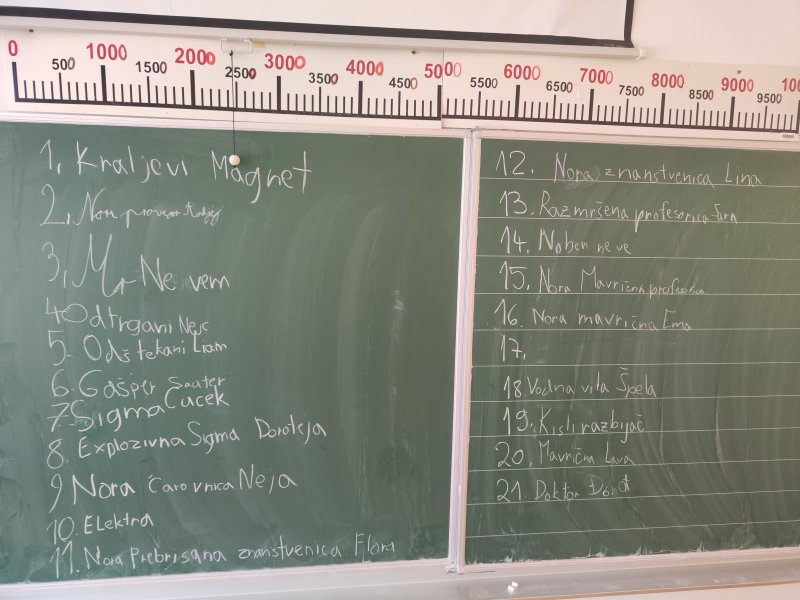 0 500 1000 1500 2000 2500 3000 3500 4000 4500 5000 5500 6000 6500 7000 7500 8000 8500 9000 9500
1, Kraljevi Magnet
2, Nori
3, Mr Ne vem
4. Odtrgani Nejc
5. Odštekani Liam
6. Gašper Sauter
7. Sigma Cucek
8. Explozivna Sigma Doroteja
9. Nora čarovnica Neja
10. Elektra
11. Nora Prebrisana znanstvenica Flora
12. Nora znanstvenica Lina
13. Razmršena profesorica
14. Noben ne ve
15. Nora Mavrična profesorica
16. Nora mavrična Ema
17.
18. Vodna vila Špela
19. Kisli razbijač
20, Mavrična Lava
21. Doktor